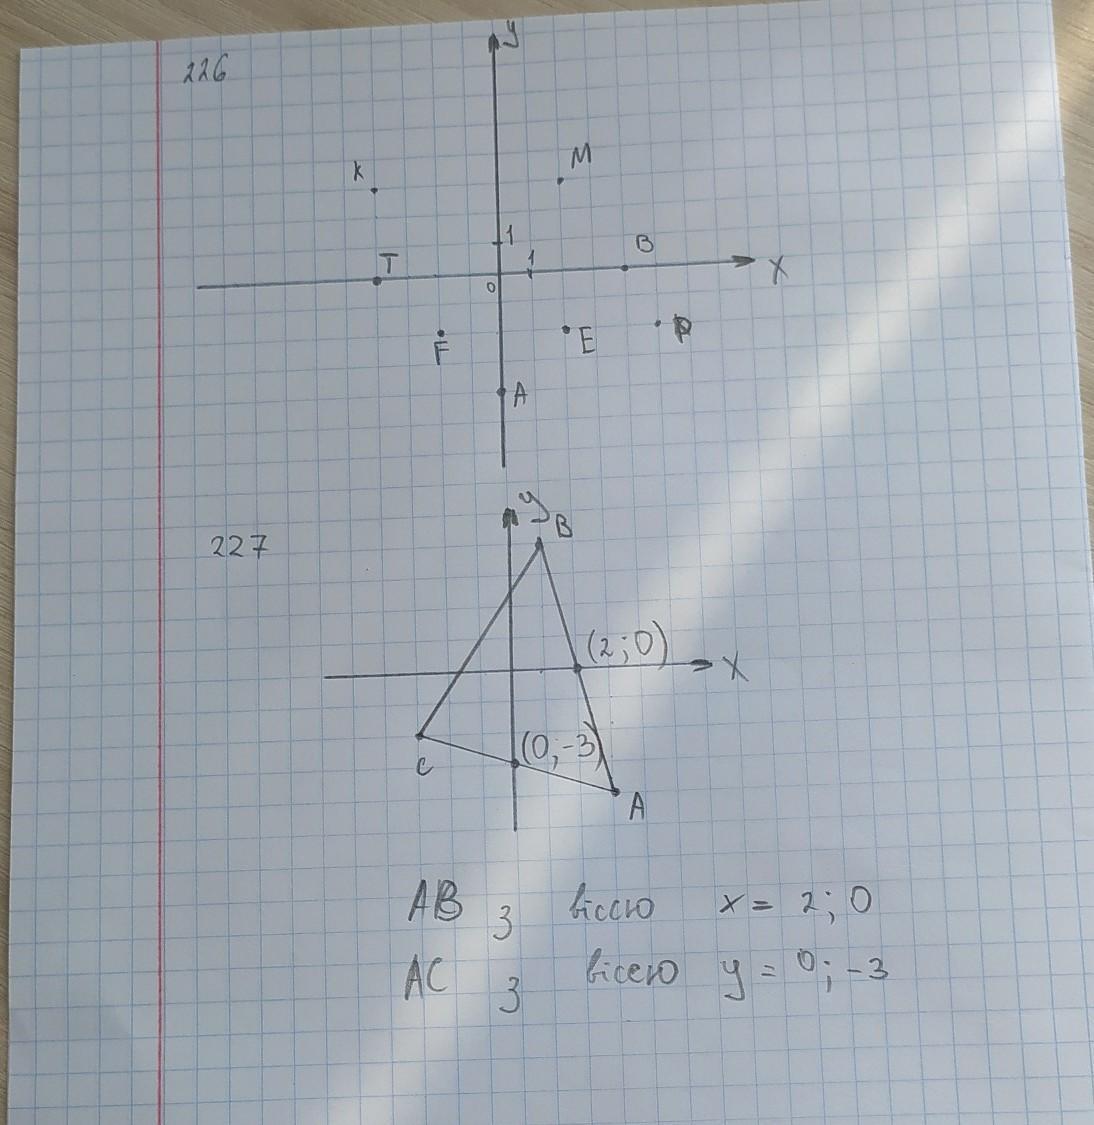 226
y
K
M
1
T
1
B
X
0
F
E
A
227
y
B
(2;0)
X
(0;-3)
C
A
AB з віссю x = 2; 0
AC з віссю y = 0; -3